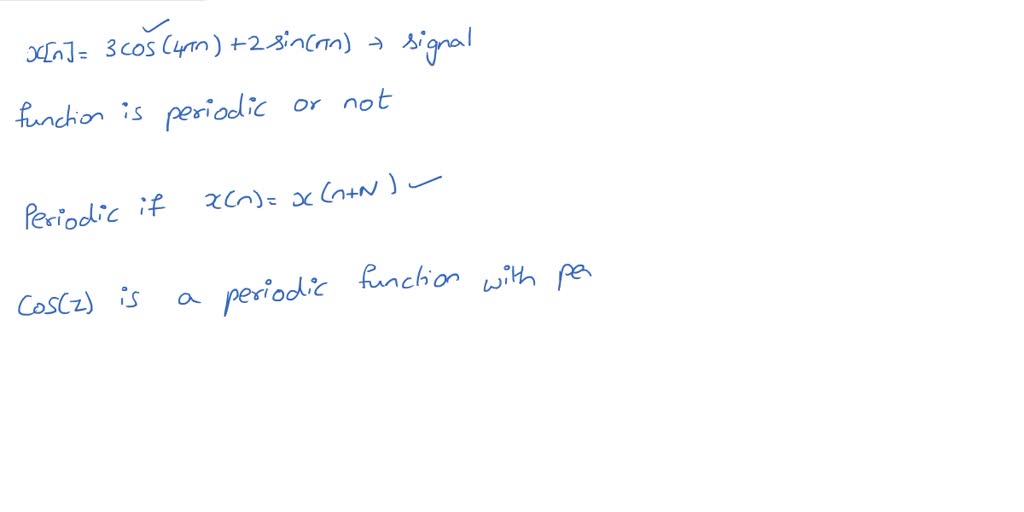 x[n]= 3cos(4πn)+2sin(πn) → signal
function is periodic or not
Periodic if x(n)= x(n+N)
Cos(z) is a periodic function with pe